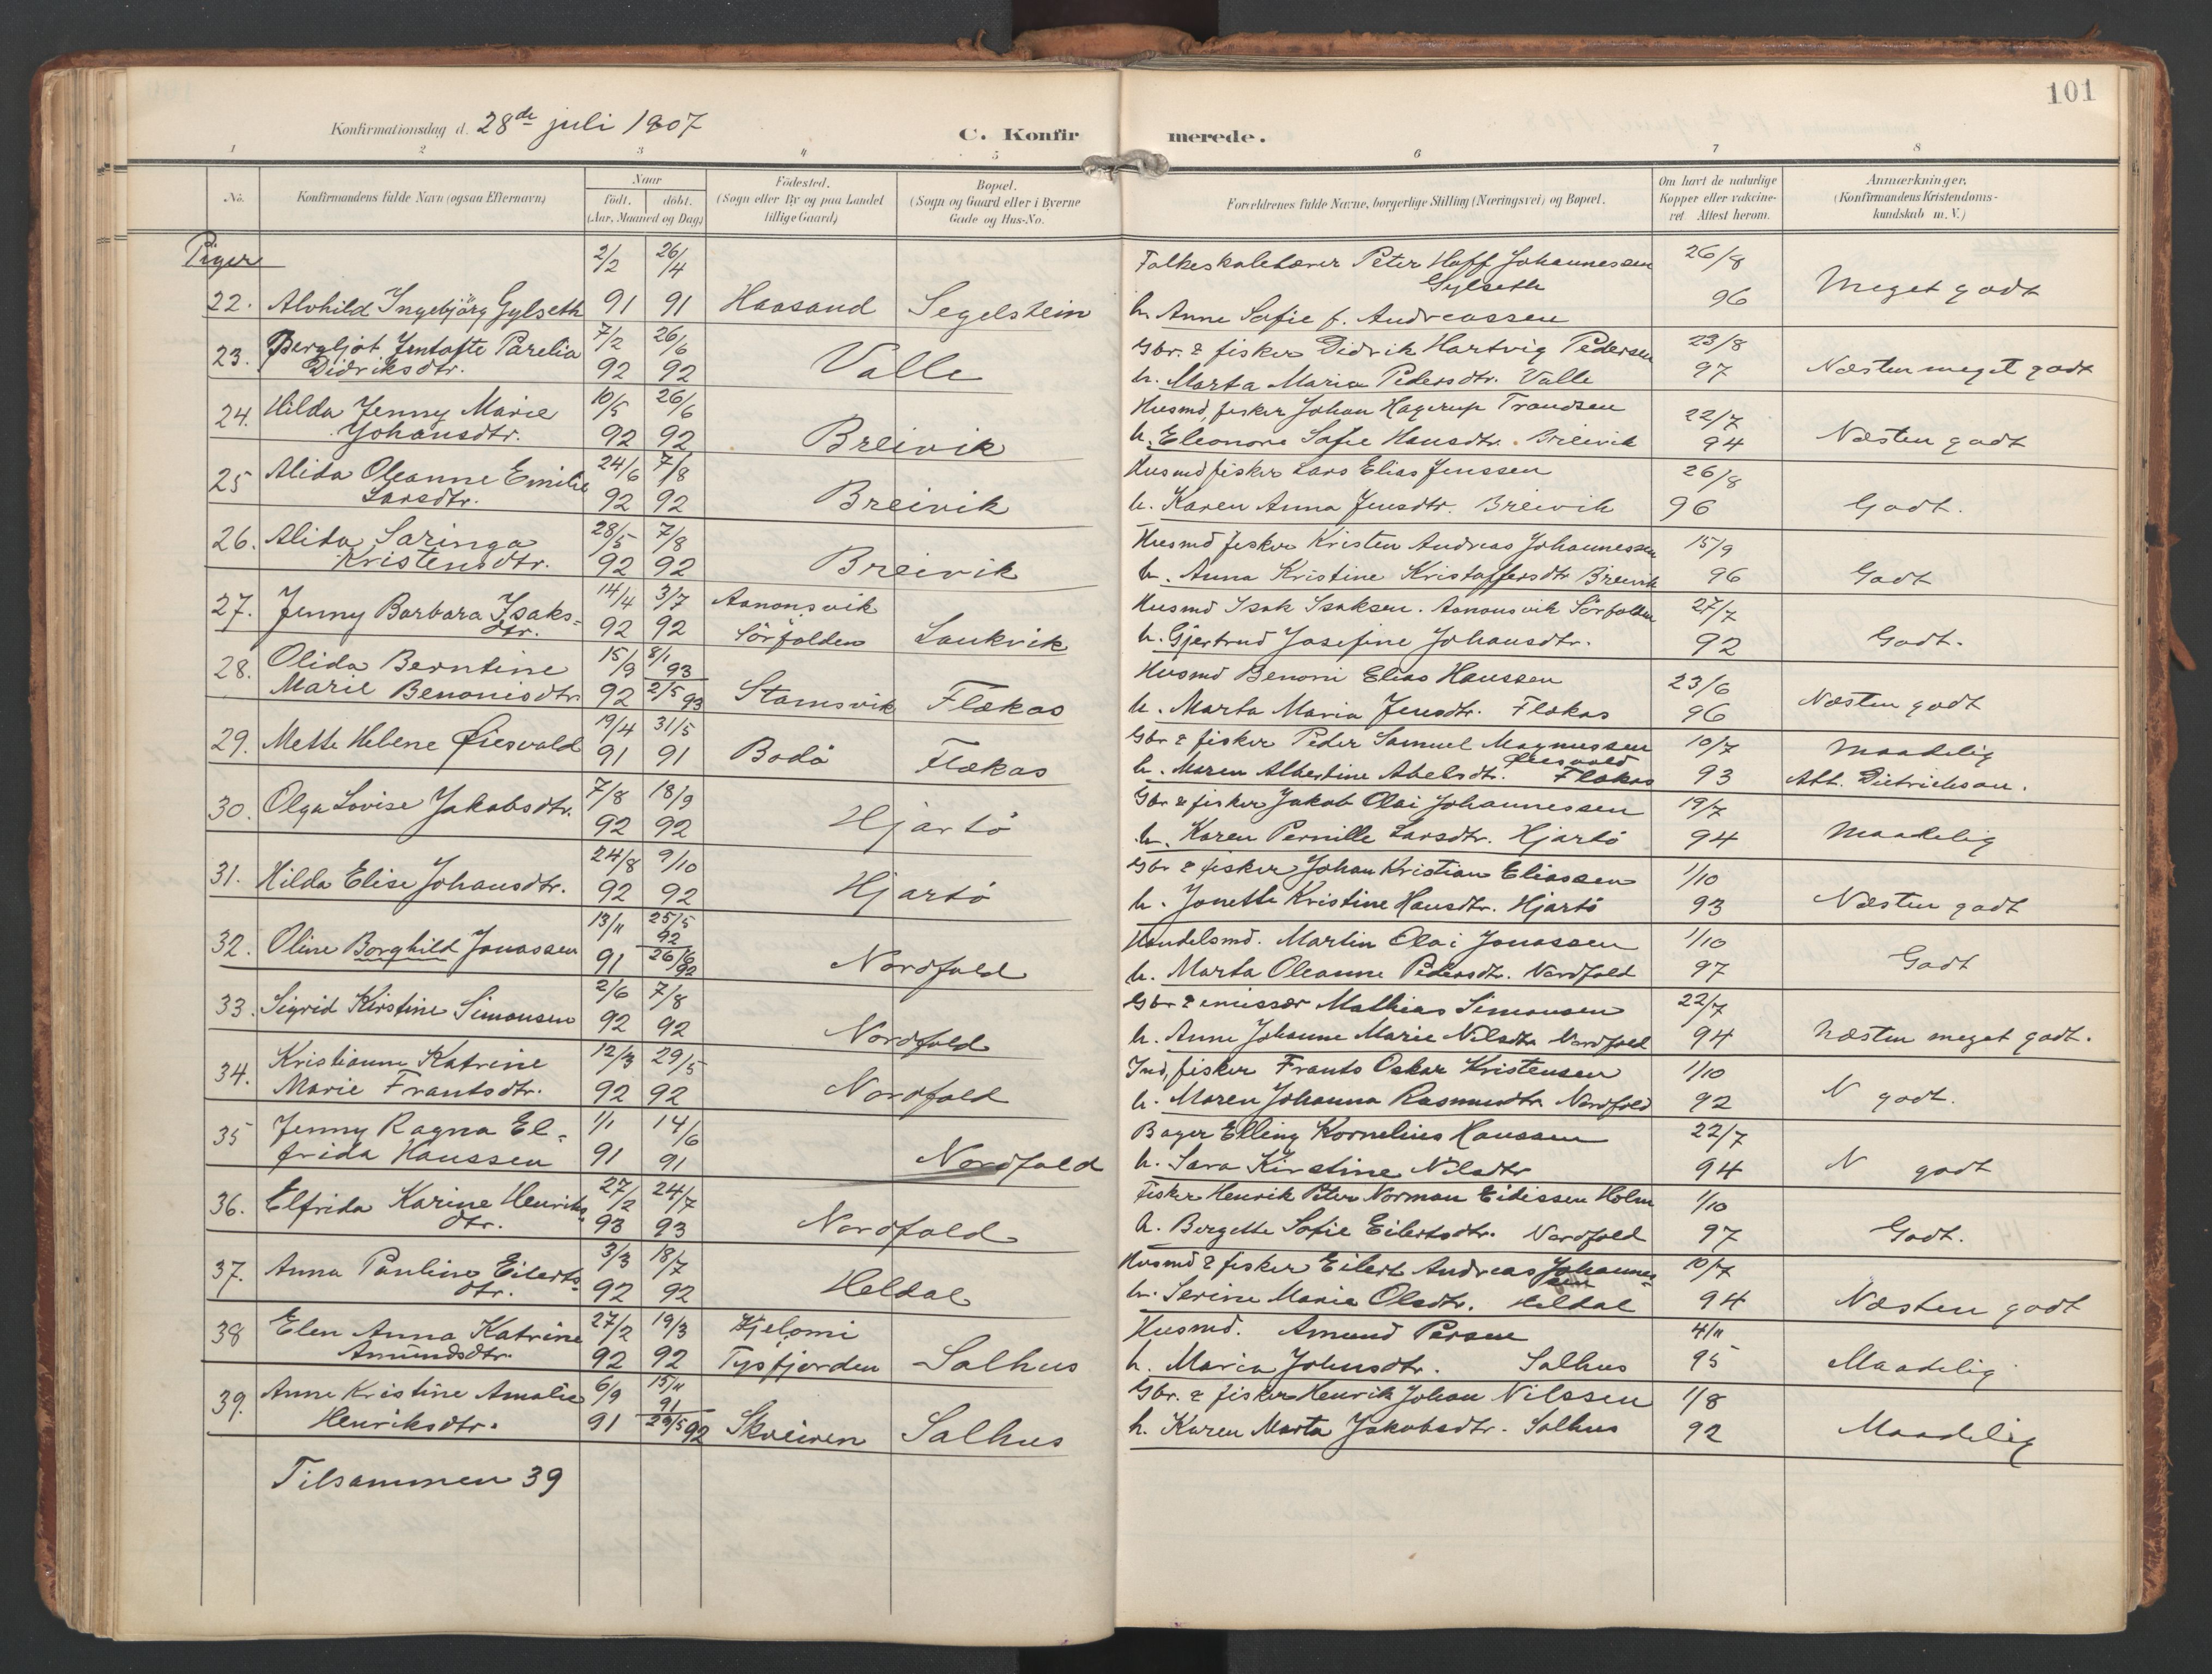 101
Konfirmationsdag d. 28de juli 1907
C. Konfirmerede.
1 2 3 4 5 6 7 8
No. Konfirmandens fulde Navn (ogsaa Efternavn) Naar födt. döbt. (Aar, Maaned og Dag) Födested. (Sogn eller By og paa Landet tillige Gaard) Bopæl. (Sogn og Gaard eller i Byerne Gade og Hus-No. Forældrenes fulde Navne, borgerlige Stilling (Næringsvei) og Bopæl. Om havt de naturlige Kopper eller vakcineret Attest herom. Anmærkninger. (Konfirmandens Kristendomskundskab m. V.)
Piger
22. Alvhild Ingebjörg Gylseth 2/2 91 26/4 91 Haasand Segelstein Folkeskolelærer Peter Hoff Johannessen Gylseth
h. Anne Sofie f. Andreassen 26/8 96 Meget godt
23. Bergljot Jentofte Parelia Didriksdtr. 7/2 92 26/6 92 Valle Gbr. & fisker Didrik Hartvig Pedersen
h. Marta Maria Pedersdtr. Valle 23/8 97 Næsten meget godt
24. Hilda Jenny Marie Johansdtr. 10/5 92 26/6 92 Breivik Husmd, fisker Johan Hagerup Trondsen
h. Eleonore Sofie Hansdtr. Breivik 22/7 94 Næsten godt
25 Alida Oleanne Emilie Larsdtr. 24/6 92 7/8 92 Breivik Husmd fisker Lars Elias Jenssen
h. Karen Anna Jensdtr. Breivik 26/8 96 Godt.
26. Alida Saringa Kristensdtr. 28/5 92 7/8 92 Breivik Husmd fisker Kristen Andreas Johannessen
h. Anna Kristine Kristoffersdtr Breivik 15/9 96 Godt
27. Jenny Barbara Isaksdtr. 14/4 92 3/7 92 Aanonsvik Sörfolden Laukvik Husmd Isak Isaksen. Aanonsvik Sörfolden
h. Gjertrud Josefine Johansdtr. 27/7 92 Godt.
28. Olida Berntine Marie Benonisdtr 15/9 92 8/1 93 2/5 93 Stamsvik Flækas Husmd Benoni Elias Hanssen
h. Marta Maria Jensdtr. Flekas 23/6 96 Næsten godt
29. Mette Helene Öiesvold 19/4 91 31/5 91 Bodö Flækas Gbr & fisker Peder Samuel Magnussen Öiesvold
h. Maren Albertine Abelsdtr. Flækas 10/7 93 Maadelig
Att. Dietrichson.
30. Olga Lovise Jakobsdtr. 7/8 92 18/9 92 Hjartö Gbr & fisker Jakob Olai Johannessen
h. Karen Pernille Larsdtr. Hjartö 19/7 94 Maadelig
31. Hilda Elise Johansdtr. 24/8 92 9/10 92 Hjartö Gbr & fisker Johan Kristian Eliassen
h. Jonette Kristine Hansdtr. Hjartö 1/10 93 Næsten godt
32. Oline Borghild Jonassen 13/11 91 25/5 92 26/6 92 Nordfold Handelsmd. Martin Olai Jonassen
h. Marta Oleanne Pedersdtr. Nordfold 1/10 97 Godt
33. Sigrid Kirstine Simonsen 2/6 92 7/8 92 Nordfold Gbr & emissær Mathias Simonsen
h. Anne Johanne Marie Nilsdtr Nordfold 22/7 94 Næsten meget godt.
34. Kristianne Katrine Marie Frantsdtr. 12/3 92 29/5 92 Nordfold Ind, fisker Frants Oskar Kristensen
h. Maren Johanna Rasmusdtr Nordfold 1/10 92 N godt.
35 Jenny Ragna Elfrida Hanssen 1/1 91 14/6 91 Nordfold Bager Elling Kornelius Hanssen
h. Sara Kirstine Nilsdtr 22/7 94 N godt
36. Elfrida Karine Henriksdtr. 27/2 93 24/7 93 Nordfold Fisker Henrik Peter Norman Eidissen Holm
h. Bergette Sofie Eilertsdtr. Nordfold 1/10 97 Godt.
37. Anna Pauline Eilertsdtr. 3/3 92 18/7 92 Heldal Husmd & fisker Eilert Andreas Johannessen
h. Serine Marie Olsdtr. Heldal 10/7 94 Næsten godt
38 Elen Anna Katrine Amundsdtr. 27/2 92 19/3 92 Kjelomi Tysfjorden Salhus Husmd. Amund Persen
h. Maria Johnsdtr. Salhus 4/11 95 Maadelig
39. Anne Kristine Amalie Henriksdtr. 6/9 91 15/11 91 29/5 92 Skveiven Salhus Gbr. & fisker Henrik Johan Nilssen
h. Karen Marta Jakobsdtr. Salhus 1/8 92 Maadelig
Tilsammen 39